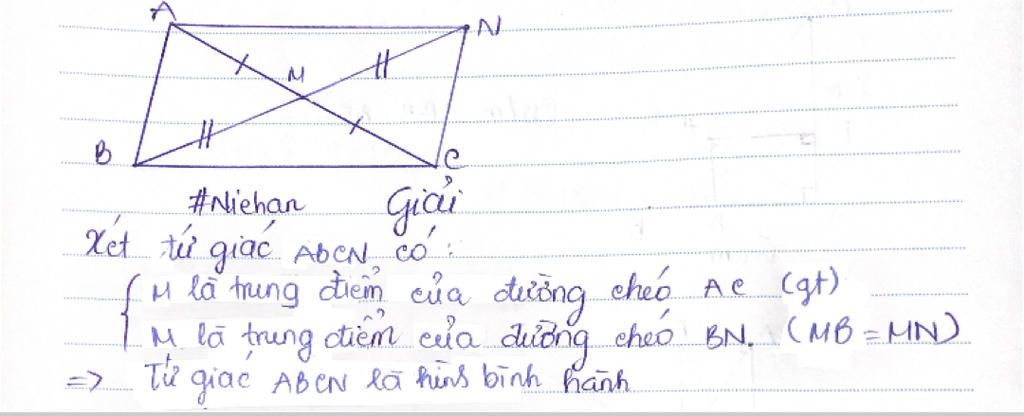 A N
M
B C
#Niehan Giải
Xét tứ giác ABCN có:
M là trung điểm của đường chéo AC (gt)
M là trung điểm của đường chéo BN. (MB = MN)
=> Tứ giác ABCN là hình bình hành